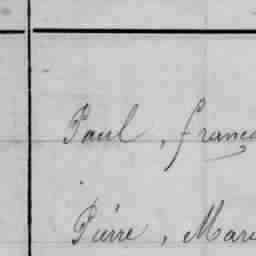 Paul, franc
Pierre, Mari